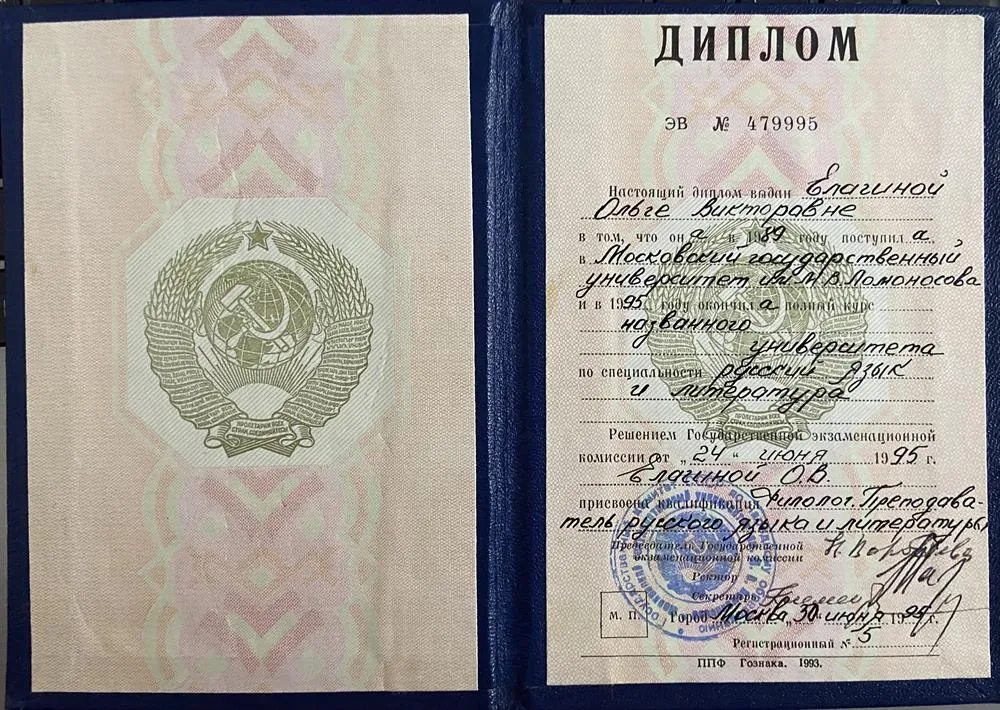 ПРОЛЕТАРИИ ВСЕХ
СТРАН, СОЕДИНЯЙТЕСЬ!
ДИПЛОМ
ЭВ № 479995
Настоящий диплом выдан Елагиной
Ольге Викторовне
в том, что она в 1989 году поступила
в Московский государственный
университет им. М.В. Ломоносова
и в 1995 году окончила полный курс
названного
университета
по специальности русский язык
и литература
Решением Государственной экзаменационной
комиссии от „24“ июня 1995 г.
Елагиной О.В.
присвоена квалификация Филолог. Преподава-
тель русского языка и литературы
Председатель Государственной
экзаменационной комиссии
Ректор
Секретарь
М. П. Город Москва, 30 июня 1995 г.
Регистрационный № 5
ППФ Гознака. 1993.